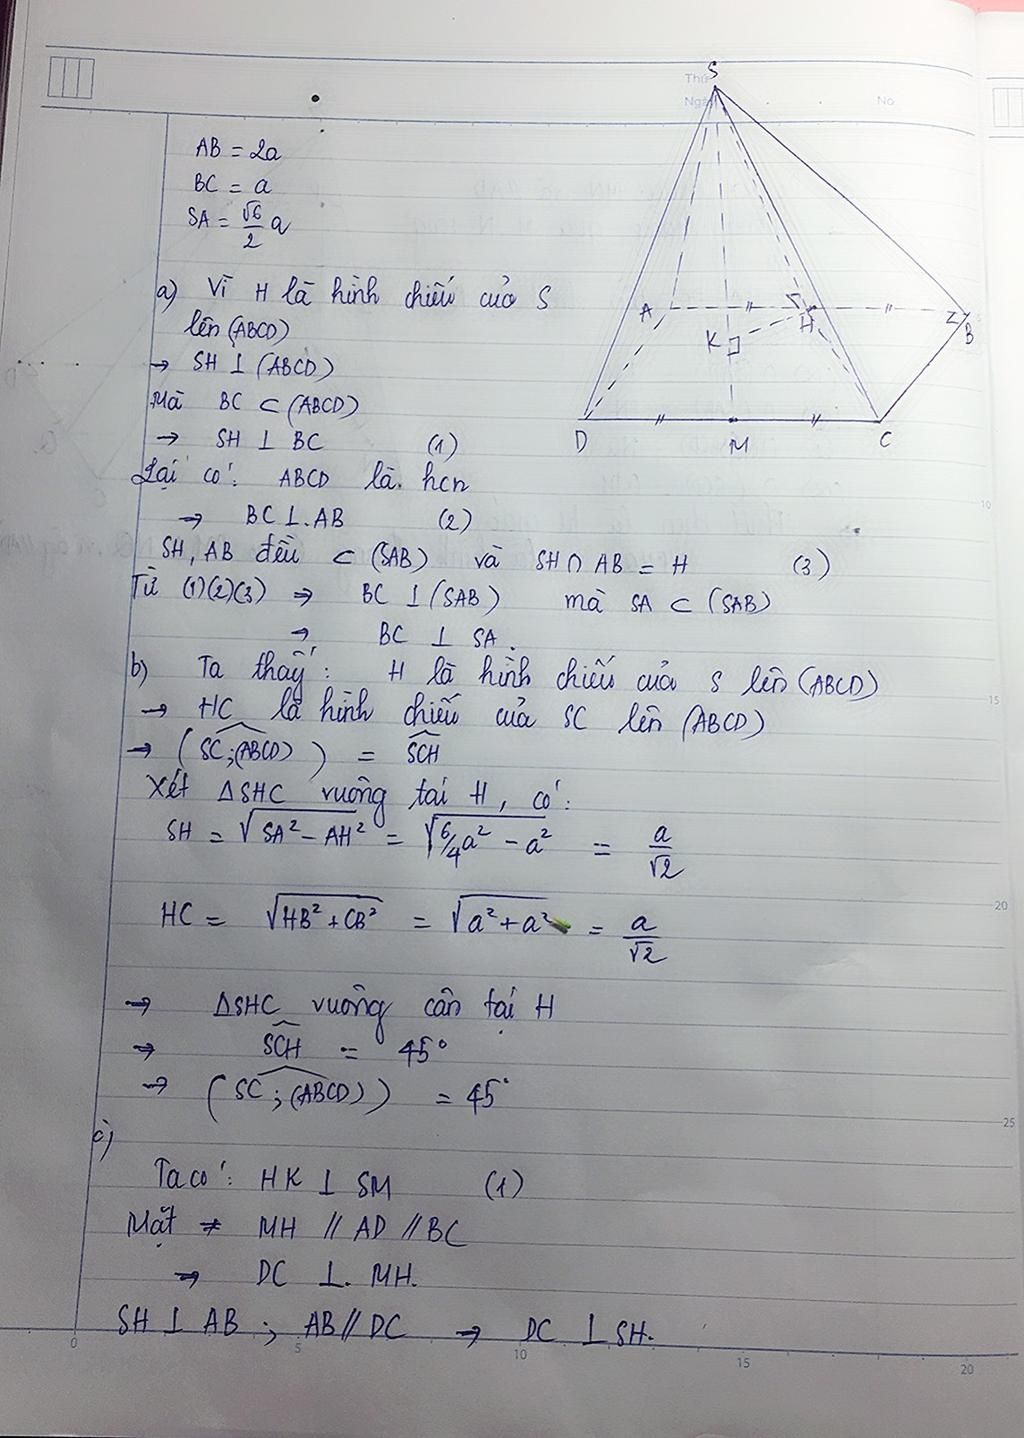 S
Thứ
Ngày
No
AB = 2a
BC = a
SA = √6/2 a
a) Vì H là hình chiếu của S
lên (ABCD)
→ SH ⊥ (ABCD)
Mà BC ⊂ (ABCD)
→ SH ⊥ BC (1)
Lại có: ABCD là hcn
→ BC ⊥ AB (2)
SH, AB đều ⊂ (SAB) và SH ∩ AB = H (3)
Từ (1)(2)(3) ⇒ BC ⊥ (SAB) mà SA ⊂ (SAB)
→ BC ⊥ SA.
A
H
B
K
D
M
C
b) Ta thấy: H là hình chiếu của S lên (ABCD)
→ HC là hình chiếu của SC lên (ABCD)
→ (SC;(ABCD)) = SCH
Xét ΔSHC vuông tại H, có:
SH = √(SA² - AH²) = √(6/4a² - a²) = a/√2
HC = √(HB² + CB²) = √(a² + a²) = a/√2
→ ΔSHC vuông cân tại H
→ SCH = 45°
→ (SC;(ABCD)) = 45°
c)
Ta có: HK ⊥ SM (1)
Mặt ≠ MH // AD // BC
→ DC ⊥ MH.
SH ⊥ AB ; AB // DC → DC ⊥ SH.
10
15
20
25
0
5
10
15
20